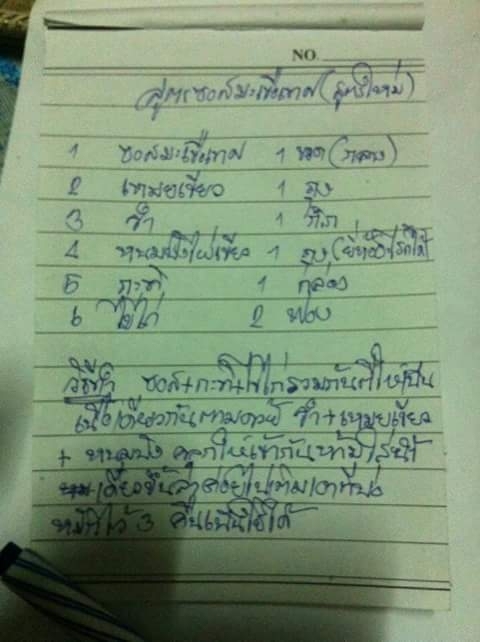 NO.
สูตรซอสมะเขือเทศ (สูตรใหม่)
1 ซอสมะเขือเทศ 1 ขวด (กลาง)
2 เหมยเขียว 1 ถุง
3 รำ 1 โล
4 ขนมปังไผ่เขียว 1 ถุง (ยี่ห้ออะไรก็ได้)
5 กะทิ 1 กล่อง
6 ไข่ไก่ 2 ฟอง
วิธีทำ ซอส+กะทิ+ไข่ไก่รวมกันตีให้เป็น
เนื้อเดียวกันตามด้วย รำ+เหมยเขียว
+ ขนมปัง คลุกให้เข้ากันห้ามใส่น้ำ
เดี๋ยวขึ้นรา
หมักไว้ 3 คืนเป็นใช้ได้